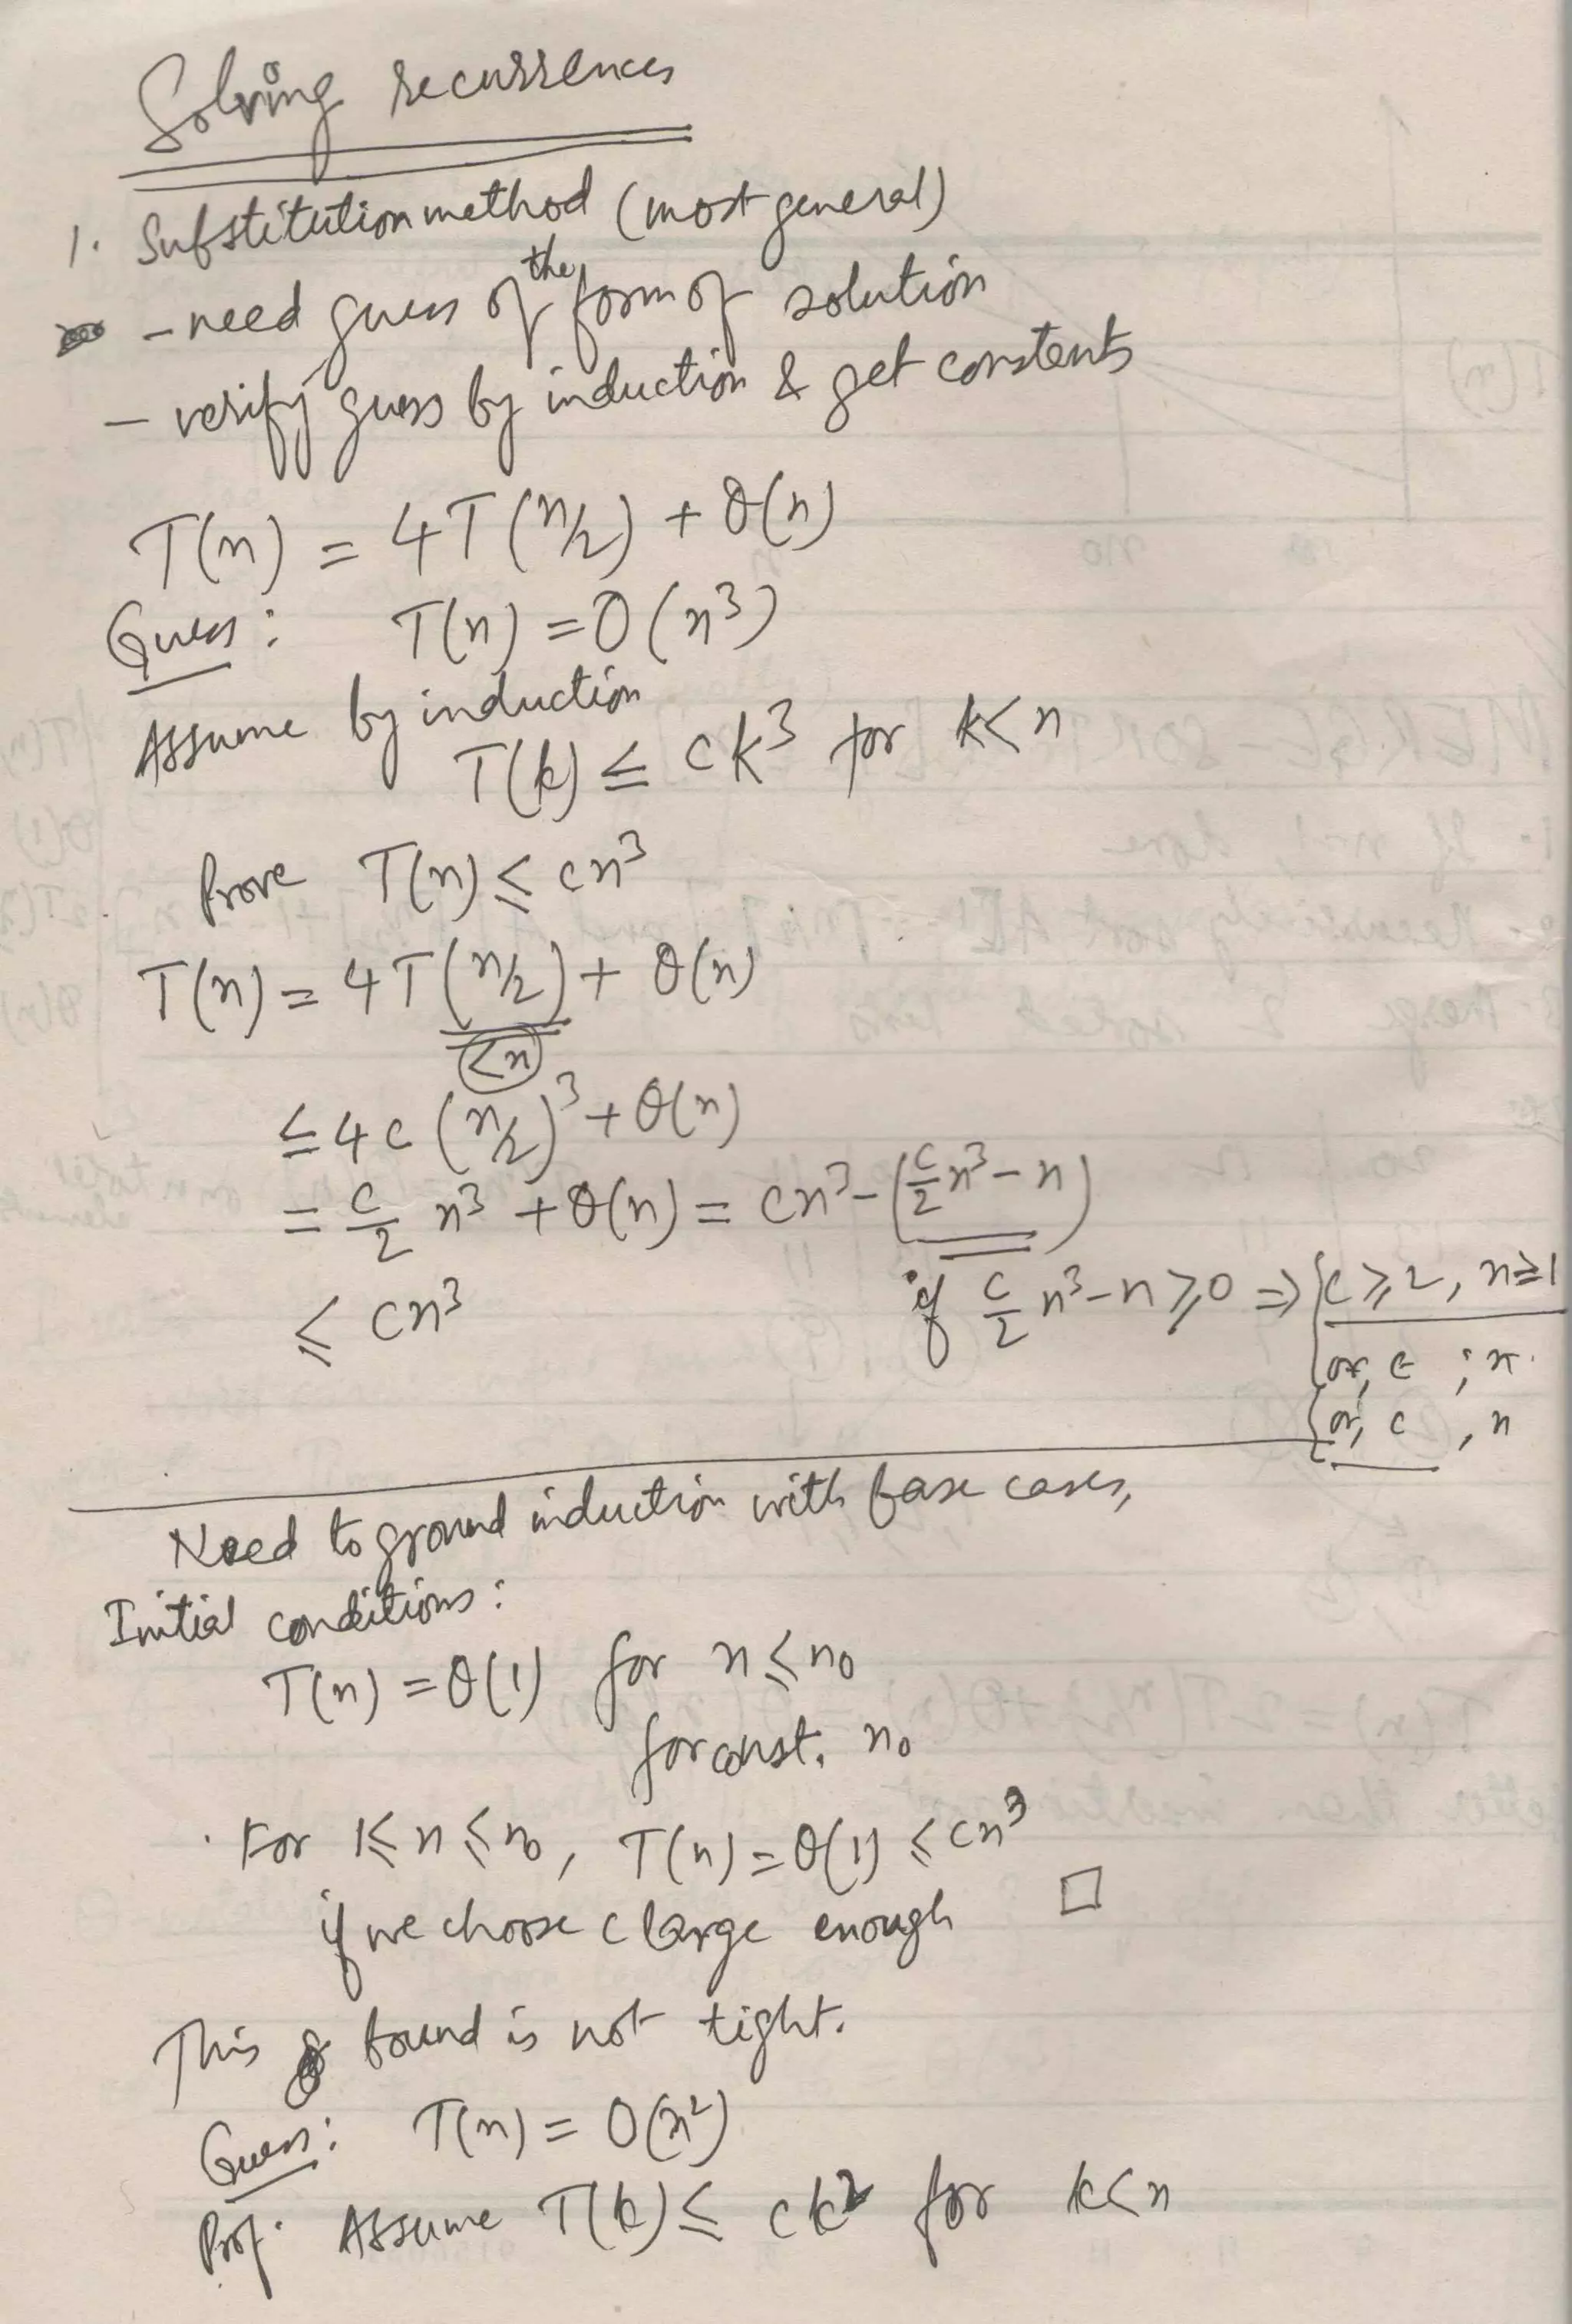 Solving recurrences
1. Substitution method (most general)
- need guess of the form of solution
- verify guess by induction & get constants
T(n) = 4T(n/2) + θ(n)
Guess: T(n) = O(n³)
Assume by induction
T(k) ≤ ck³ for k<n
Prove T(n) ≤ cn³
T(n) = 4T(n/2) + θ(n)
<n
≤ 4c(n/2)³ + θ(n)
= c/2 n³ + θ(n) = cn³ - (c/2 n³ - n)
≤ cn³ if c/2 n³ - n ≥ 0 ⇒ {c ≥ 2, n ≥ 1
or, c ; n
or, c , n
Need to ground induction with base cases,
Initial conditions:
T(n) = θ(1) for n ≤ n₀
for const. n₀
For 1 ≤ n ≤ n₀, T(n) = θ(1) ≤ cn³
if we choose c large enough □
This bound is not tight.
Guess: T(n) = O(n²)
Prof. Assume T(k) ≤ ck² for k<n